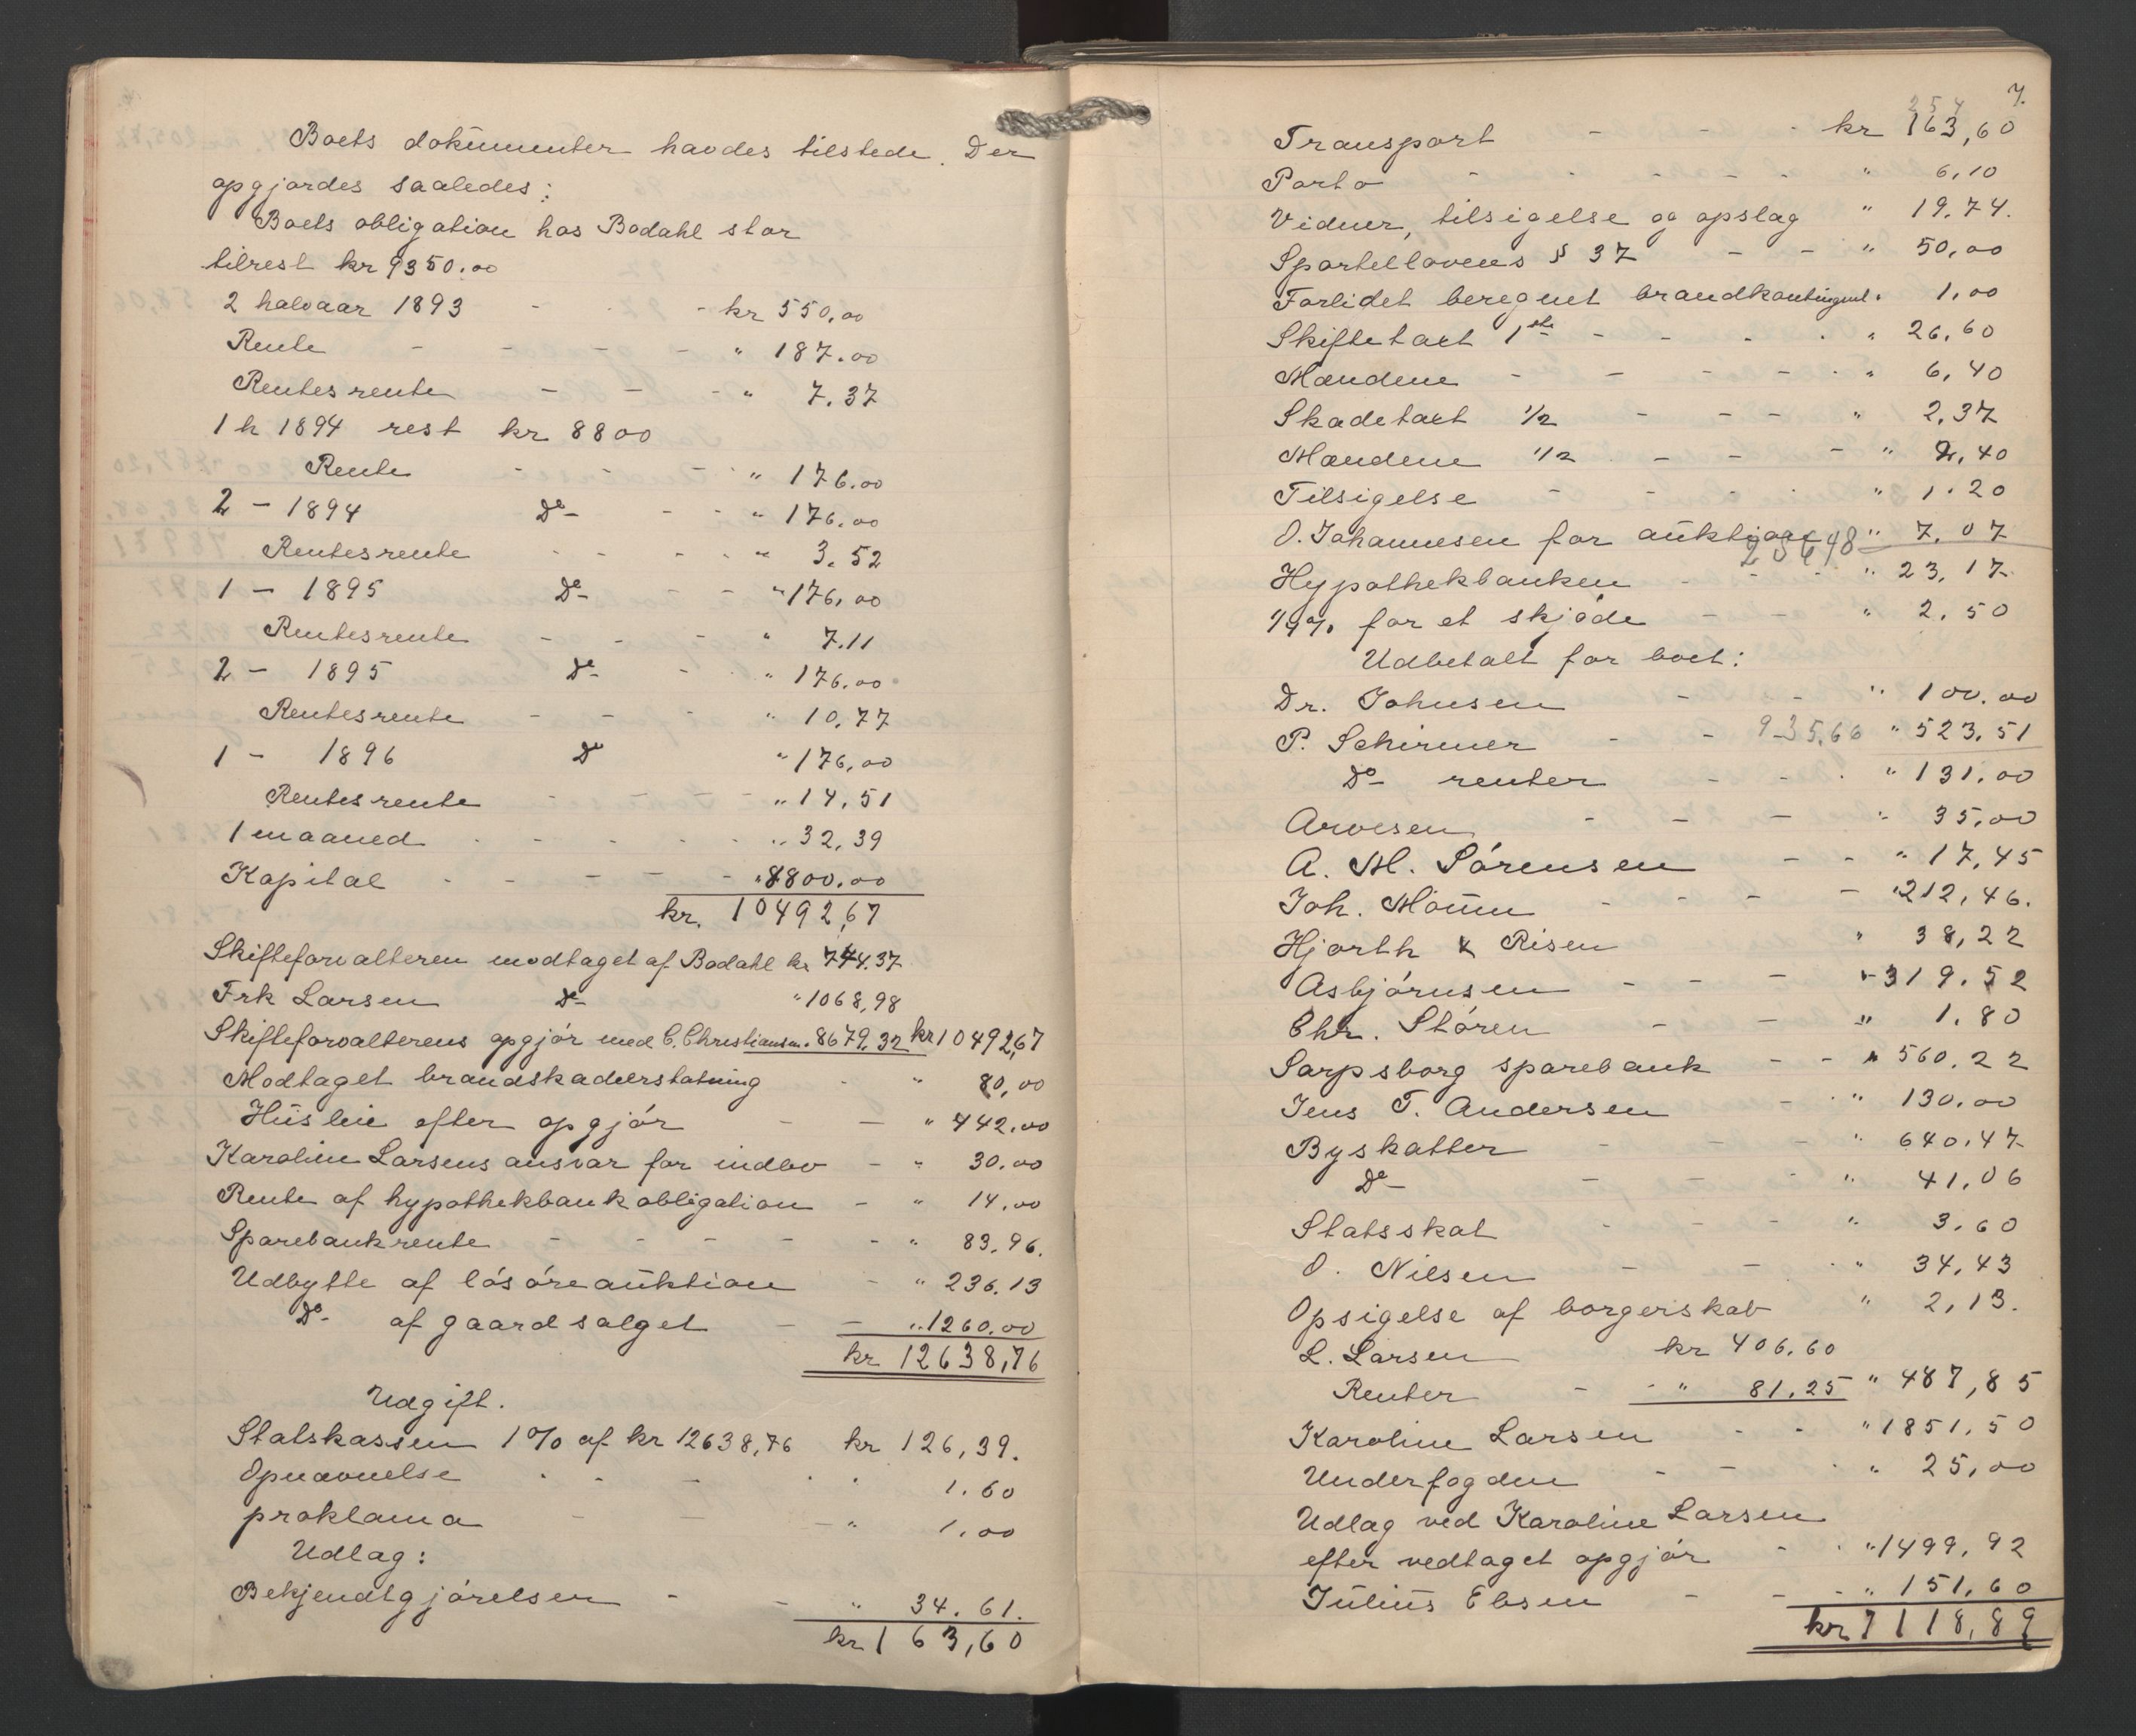 Boets dokumenter havdes tilstede. Der
opgjordes saaledes:
Boets obligation hos Bodahl stor
tilrest kr 9350.00
2 halvaar 1893 - - kr 550,00
Rente - - - - " 187.00
Rentesrente - - - " 7.37
1 h 1894 rest kr 8800
Rente - - - " 176.00
2 - 1894 Do - - " 176.00
Rentesrente - - - " 3.52
1 - 1895 Do - - " 176,00
Rentesrente - - - " 7.11
2 - 1895 Do - - " 176.00
Rentesrente - - - " 10.77
1 - 1896 Do " 176,00
Rentesrente - - - " 14,51
1 maaned - - - - " 32,39
Kapital - - - - - " 8800.00
kr. 10492,67
Skifteforvalteren modtaget af Bodahl kr 744.37
Frk Larsen Do " 1068,98
Skifteforvalterens opgjör med C. Christiansen " 8679.32 kr 10492,67
Modtaget brandskadeerstatning - " 80,00
Husleie efter opgjör - - " 442.00
Karoline Larsens ansvar for indbo - " 30.00
Rente af hypothekbankobligation - " 14.00
Sparebankrente - - - - - " 83,96.
Udbytte af lösöreauktion - " 236.13
Do af gaardsalget - - " 1260.00
kr 12638,76
Udgift.
Statskassen 1% af kr 12638,76 kr 126,39.
Opnævnelse - - - - " 1.60
proklama - - - " 1.00
Udlag:
Bekjendtgjörelser - - " 34.61.
kr 163,60
7.
254
Transport - - - kr 163,60
Porto - - - - - " 6,10
Vidner, tilsigelse og opslag " 19.74.
Sportellovens § 37 - - " 50,00
Forlidet beregnet brandkontingent " 1,00
Skiftetaxt 1ste - - - - " 26,60
Mændene - - - - - " 6,40
Skadetaxt 1/2 - - - " 2,37
Mændene 1/2 - - - " 2,40
Tilsigelse - - - - " 1.20
O. Johannesen for auktioner " 7.07
28648
Hypothekbanken - - - " 23,17
1/4% for et skjöde - - " 2.50
Udbetalt for boet:
Dr. Johnsen - - " 100.00
P. Schirmer - - 935,66 " 523,51
Do renter - - - " 131.00
Arvesen - - - " 35,00
A. M. Sörensen - - " 17,45
Joh. Moum - - - - " 212,46.
Hjorth & Risen " 38,22
Asbjörnsen - - - " 319.52
Chr. Stören - - " 1.80
Sarpsborg sparebank - - " 560.22
Jens T. Andersen - " 130.00
Byskatter - - - " 640.47
Do - - - " 41,06
Statsskat - - - " 3.60
O. Nilsen - - - " 34,43
Opsigelse af borgerskab " 2,13.
L. Larsen kr 406.60
Renter - - " 81.25 " 487,85
Karoline Larsen - - " 1851,50
Underfogden - - - " 25,00
Udlag ved Karoline Larsen
efter vedtaget opgjör - - " 1499,92
Julius Ebsen - - - " 151,60
kr 7118,89